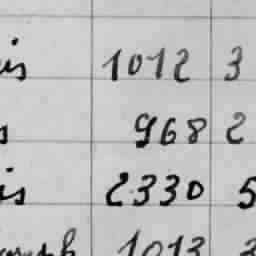 is 1012 3
s 968 2
is 2330 5
1013